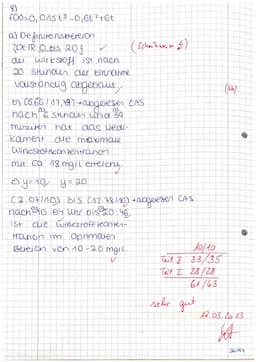 8)
f(x)=0,015t³-0,6t²+6t
a) Definitionsbereich
{0 ≤ 20}
(Schreibweise)
der Wirkstoff ist nach
20 Stunden der Einnahme
vollständig abgebaut
nach 6 Stunden und 39
Minuten hat das Medi-
kament die maximale
Wirkstoffkonzentration
mit ca 18 mg/l erreicht
c) y=10, y=20
(2.07/10) bis (12.78/10) → abgelesen CAS
ist die Wirkstoffkonzen-
tration im optimalen
Bereich von 10-20 mg/l
10/10
Teil II 33/35
Teil I 28/28
61/63
sehr gut
12.03.2023